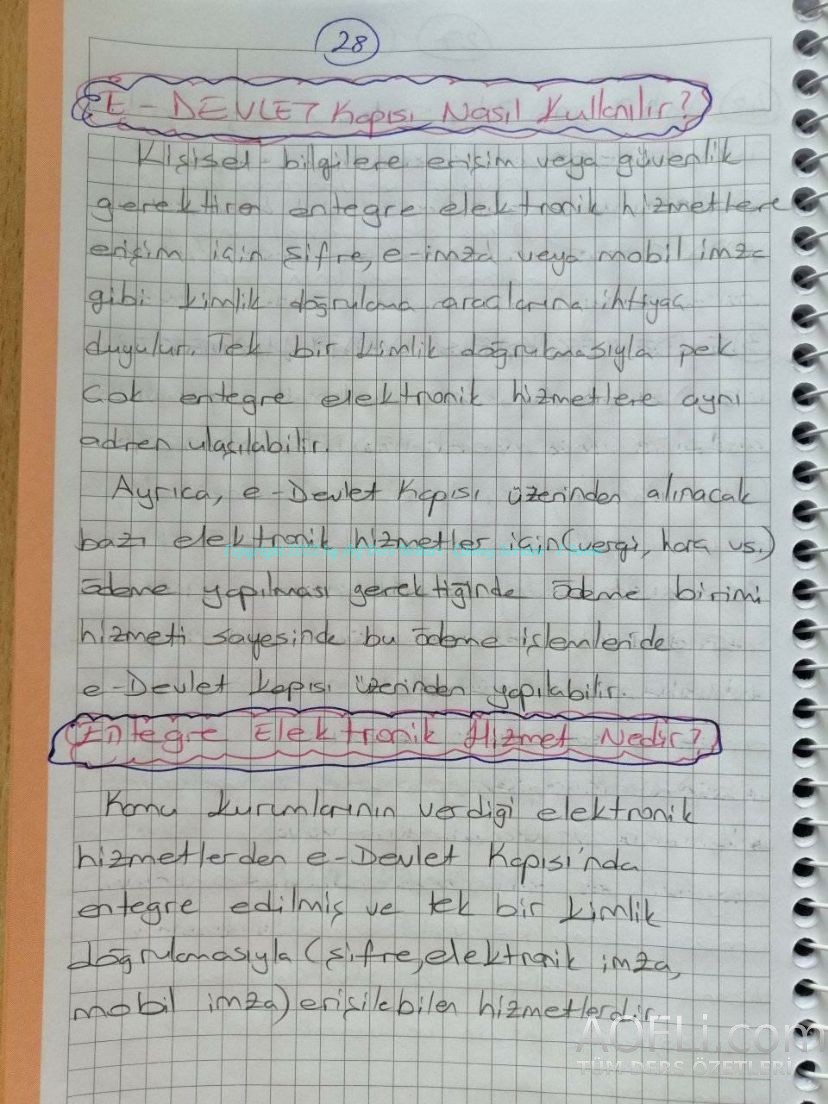 28
E-DEVLET Kapısı Nasıl Kullanılır?
Kişisel bilgilere erişim veya güvenlik
gerektiren entegre elektronik hizmetlere
erişim için şifre, e-imza veya mobil imza
gibi kimlik doğrulama araçlarına ihtiyaç
duyulur. Tek bir kimlik doğrulamasıyla pek
çok entegre elektronik hizmetlere aynı
adren ulaşılabilir.
Ayrıca, e-Devlet Kapısı üzerinden alınacak
bazı elektronik hizmetler için (vergi, harç vs.)
ödeme yapılması gerektiğinde ödeme birimi
hizmeti sayesinde bu ödeme işlemleride
e-Devlet kapısı üzerinden yapılabilir.
Entegre Elektronik Hizmet Nedir?
Kamu kurumlarının verdiği elektronik
hizmetlerden e-Devlet Kapısı'nda
entegre edilmiş ve tek bir kimlik
doğrulamasıyla (şifre, elektronik imza,
mobil imza) erişilebilen hizmetlerdir.
AOFLi.com
TÜM DERS ÖZETLERİ